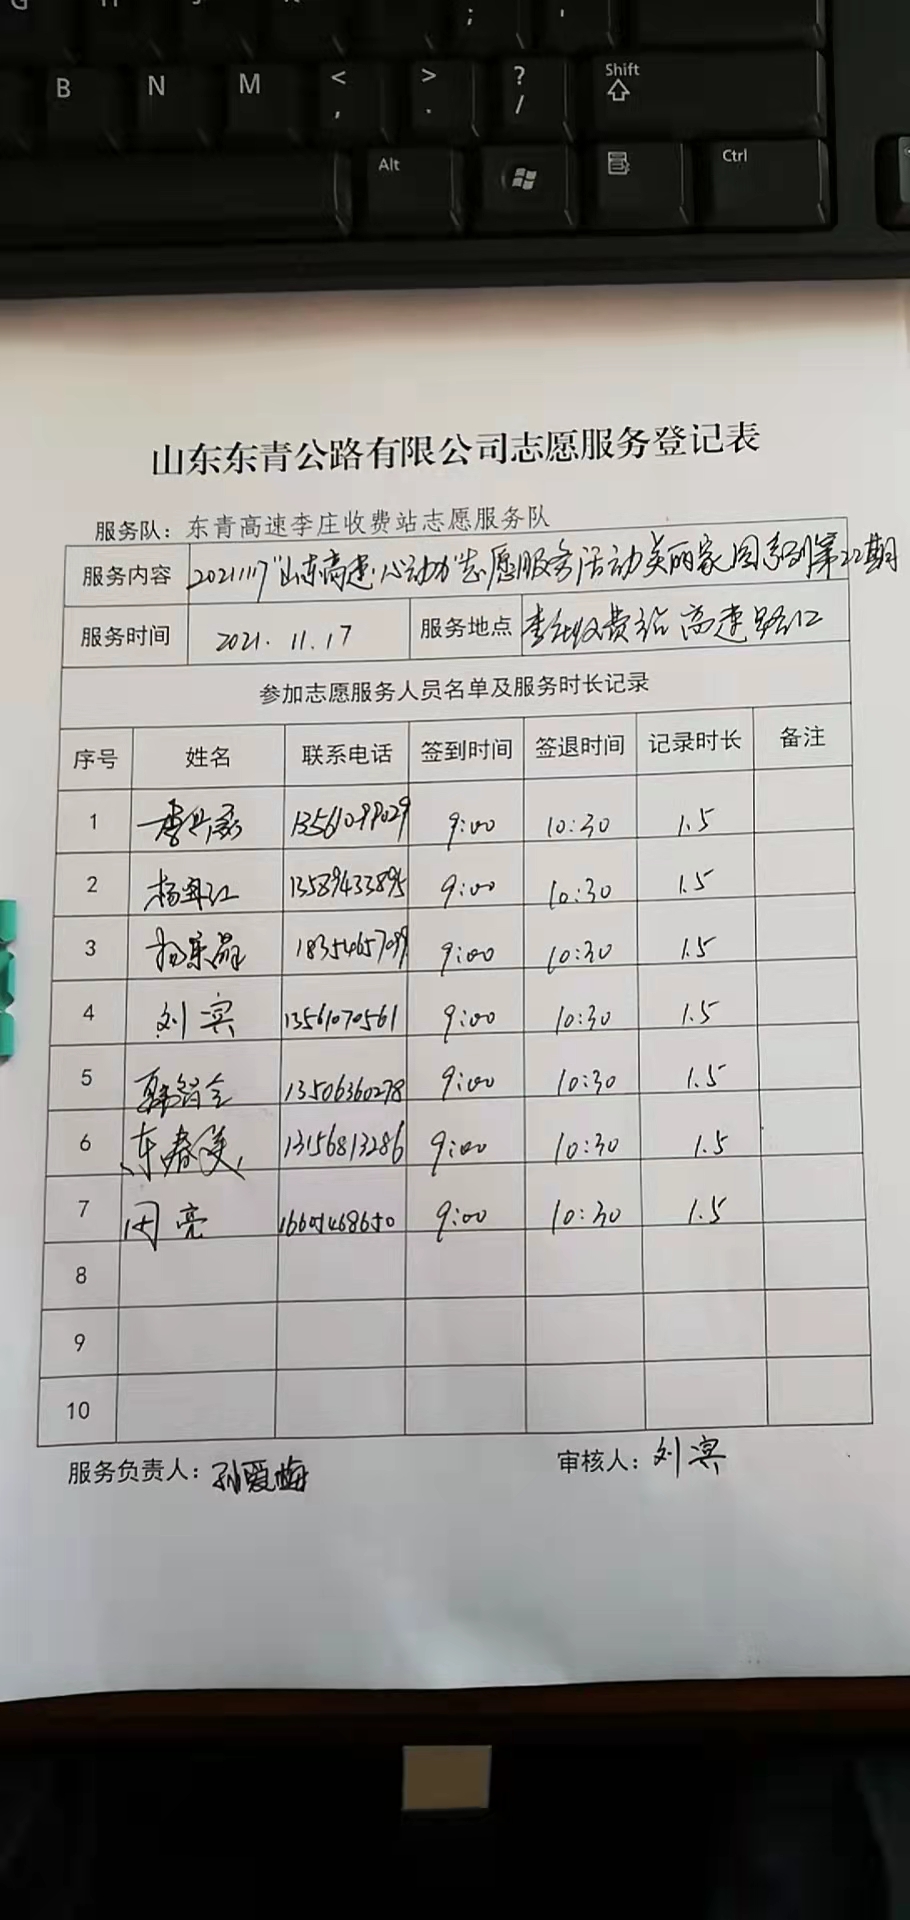 B N M < , > . ? / Shift
Alt Ctrl
山东东青公路有限公司志愿服务登记表
服务队：东青高速李庄收费站志愿服务队
服务内容 20211117"山东高速·心动力"志愿服务活动美丽家园系列第22期
服务时间 2021.11.17 服务地点 李庄收费站高速路口
参加志愿服务人员名单及服务时长记录
序号 姓名 联系电话 签到时间 签退时间 记录时长 备注
1 9:00 10:30 1.5
2 13589433895 9:00 10:30 1.5
3 18354657099 9:00 10:30 1.5
4 刘滨 13561070561 9:00 10:30 1.5
5 13506360278 9:00 10:30 1.5
6 东春美 13156813286 9:00 10:30 1.5
7 闵亮 9:00 10:30 1.5
8
9
10
服务负责人：孙爱梅 审核人：刘滨